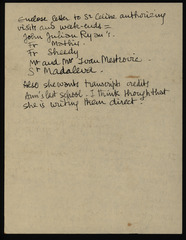 Enclose letter to Sr Celine authorizing
visits and week-ends =
John Julian Ryan's.
Fr Mathis
Fr Sheedy
Mr and Mrs Ivan Mestrovic
Sr Madaleva.
Also she wants transcripts credits
Ann's last school. I think though that
she is writing them direct.